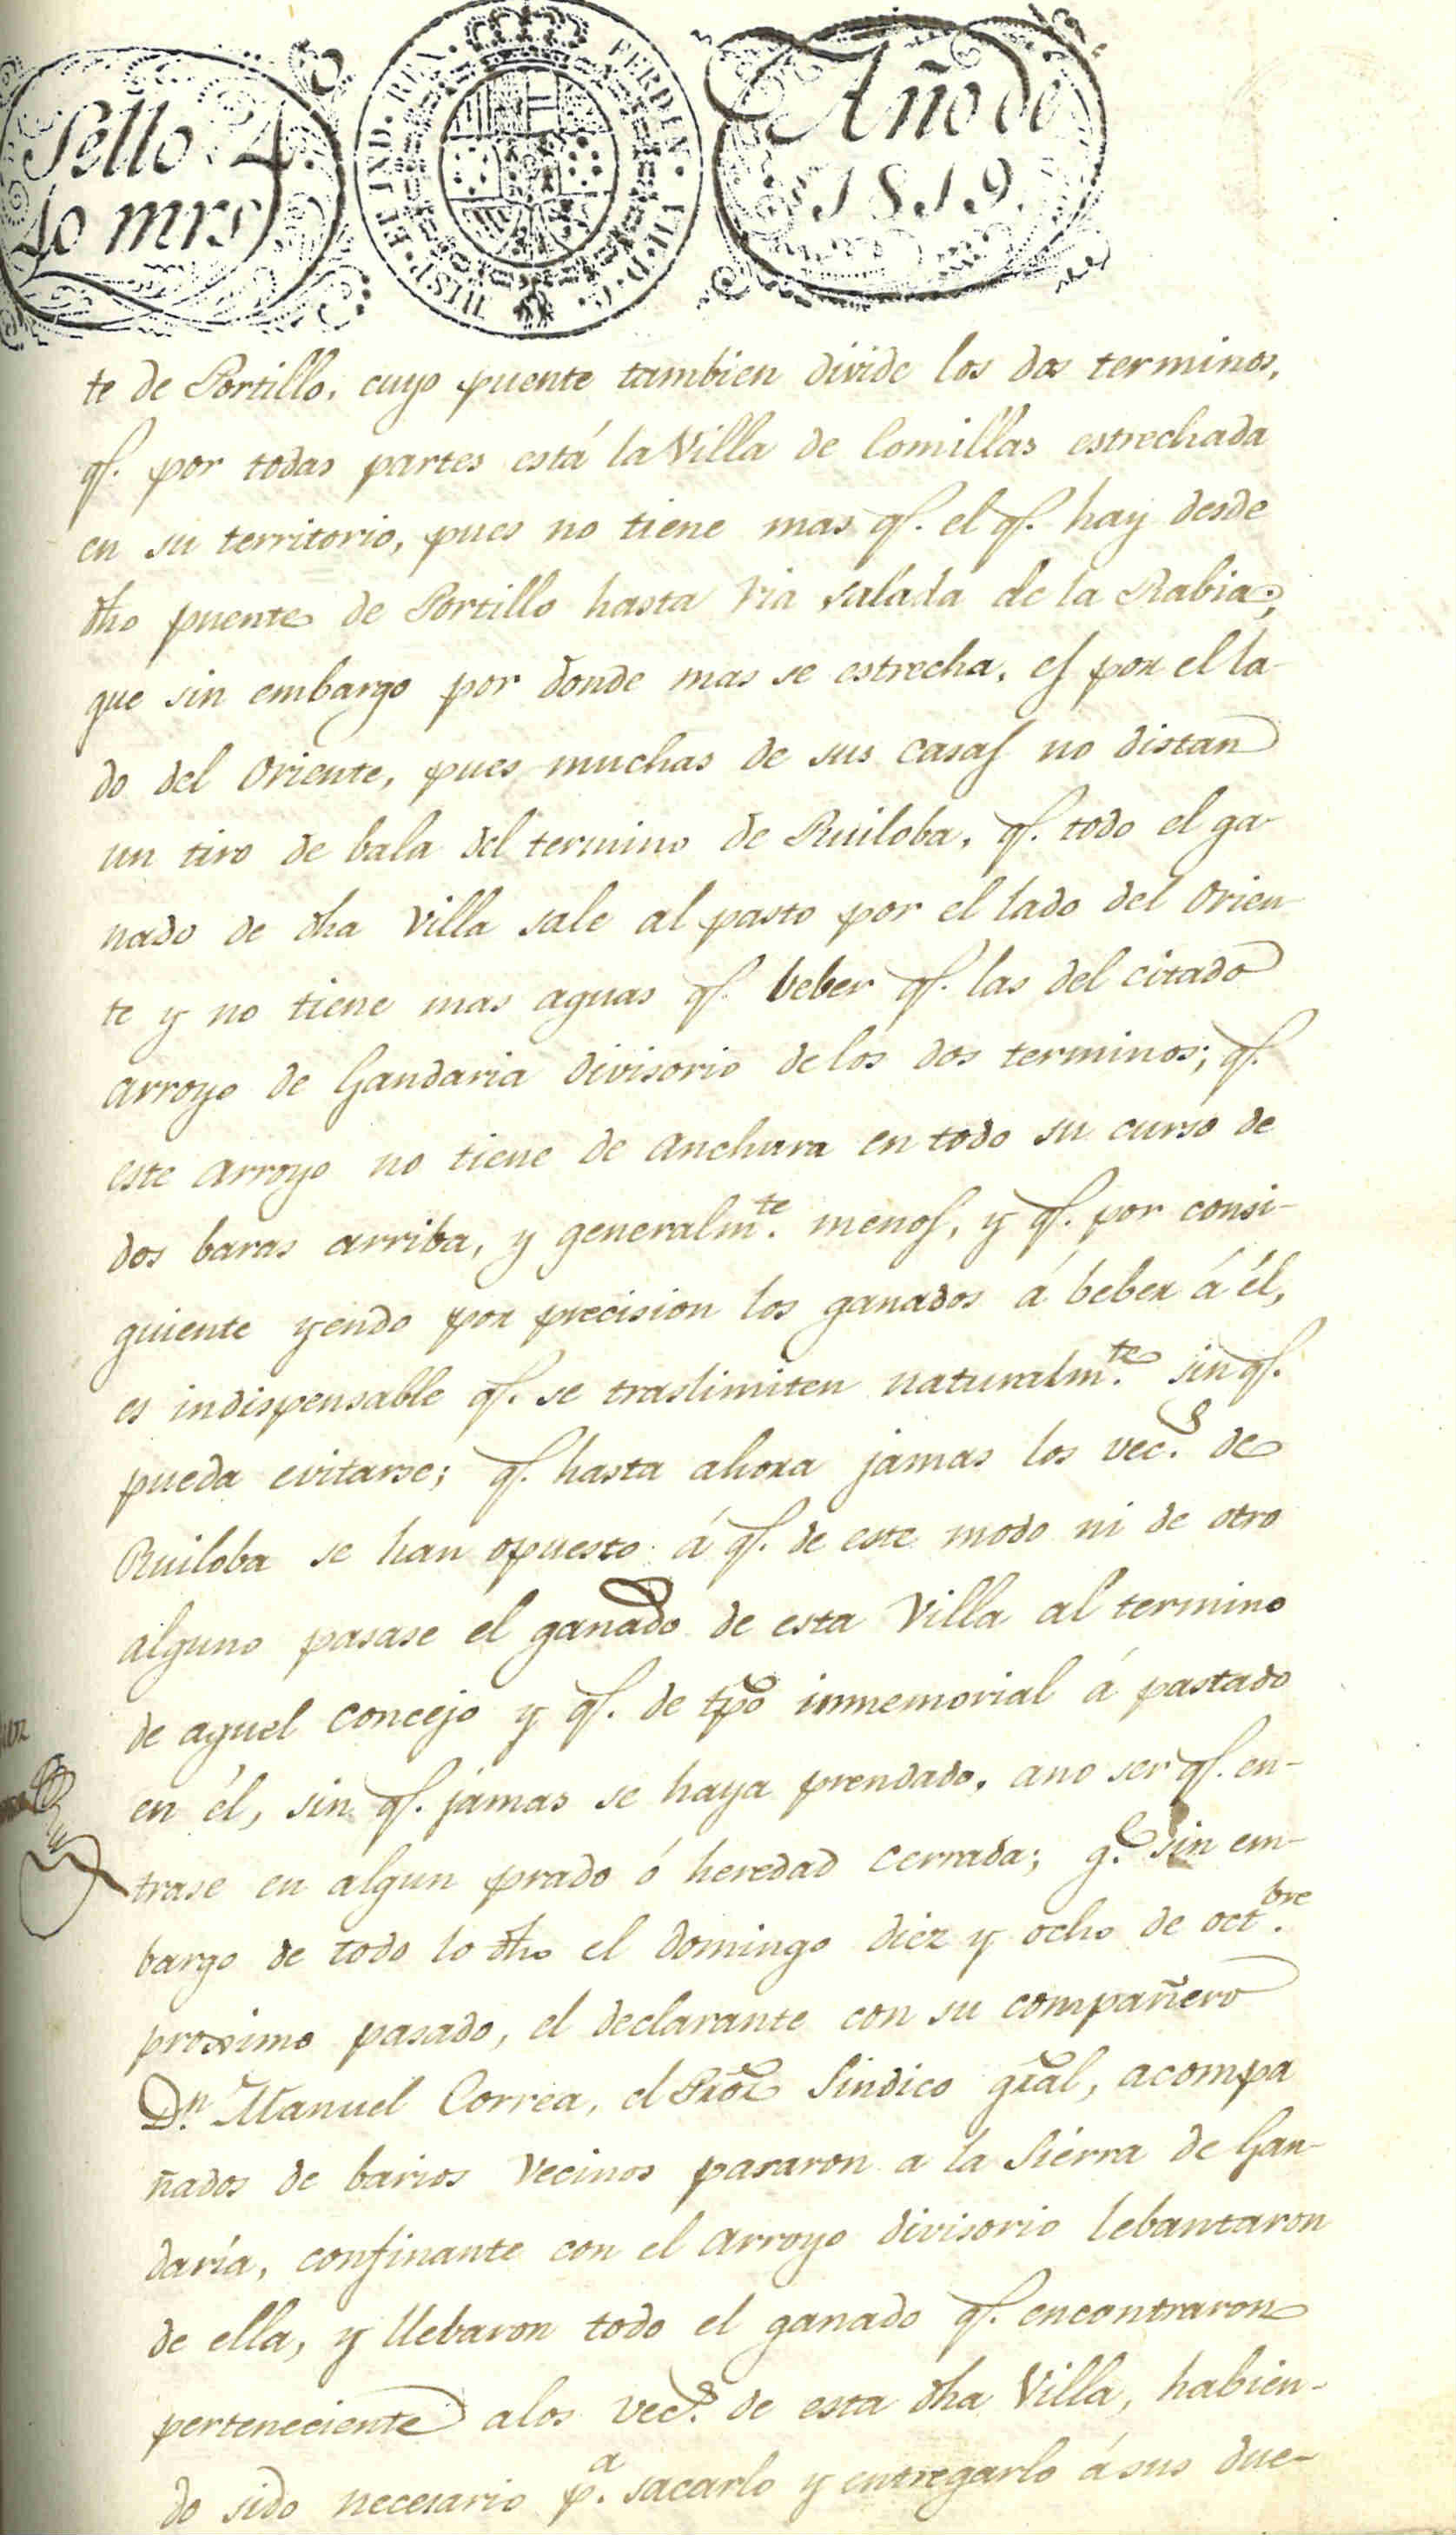 Sello 4.
40 mrs
HISP. ET IND. REX. FERDIN. VII. D. G.
Año de
1819.
te de Portillo, cuyo puente tambien divide los dos terminos,
qe. por todas partes está la Villa de Comillas estrechada
en su territorio, pues no tiene mas qe. el qe. hay desde
dho puente de Portillo hasta Ria salada de la Rabia;
que sin embargo por donde mas se estrecha, es por el la-
do del Oriente, pues muchas de sus casas no distan
un tiro de bala del termino de Ruiloba, qe. todo el ga-
nado de dha Villa sale al pasto por el lado del Orien-
te y no tiene mas aguas qe. beber qe. las del citado
arroyo de Gandaria divisorio de los dos terminos; qe.
este arroyo no tiene de anchura en todo su curso de
dos baras arriba, y generalmte. menos, y qe. por consi-
guiente yendo por precision los ganados á beber á él,
es indispensable qe. se traslimiten naturalmte. sin qe.
pueda evitarse; qe. hasta ahora jamas los vecs. de
Ruiloba se han opuesto á qe. de este modo ni de otro
alguno pasase el ganado de esta Villa al termino
de aquel concejo y qe. de tpo inmemorial á pastado
en él, sin qe. jamas se haya prendado, ano ser qe. en-
trase en algun prado ó heredad cerrada; qe. sin em-
bargo de todo lo dho el domingo diez y ocho de octbre.
proximo pasado, el declarante con su compañero
Dn. Manuel Correa, el Pror Sindico gral, acompa
ñados de barios vecinos pasaron a la Sierra de Gan-
daría, confinante con el arroyo divisorio lebantaron
de ella, y llebaron todo el ganado qe. encontraron
perteneciente alos vecs. de esta dha Villa, habien-
do sido necesario pa. sacarlo y entregarlo ásus due-